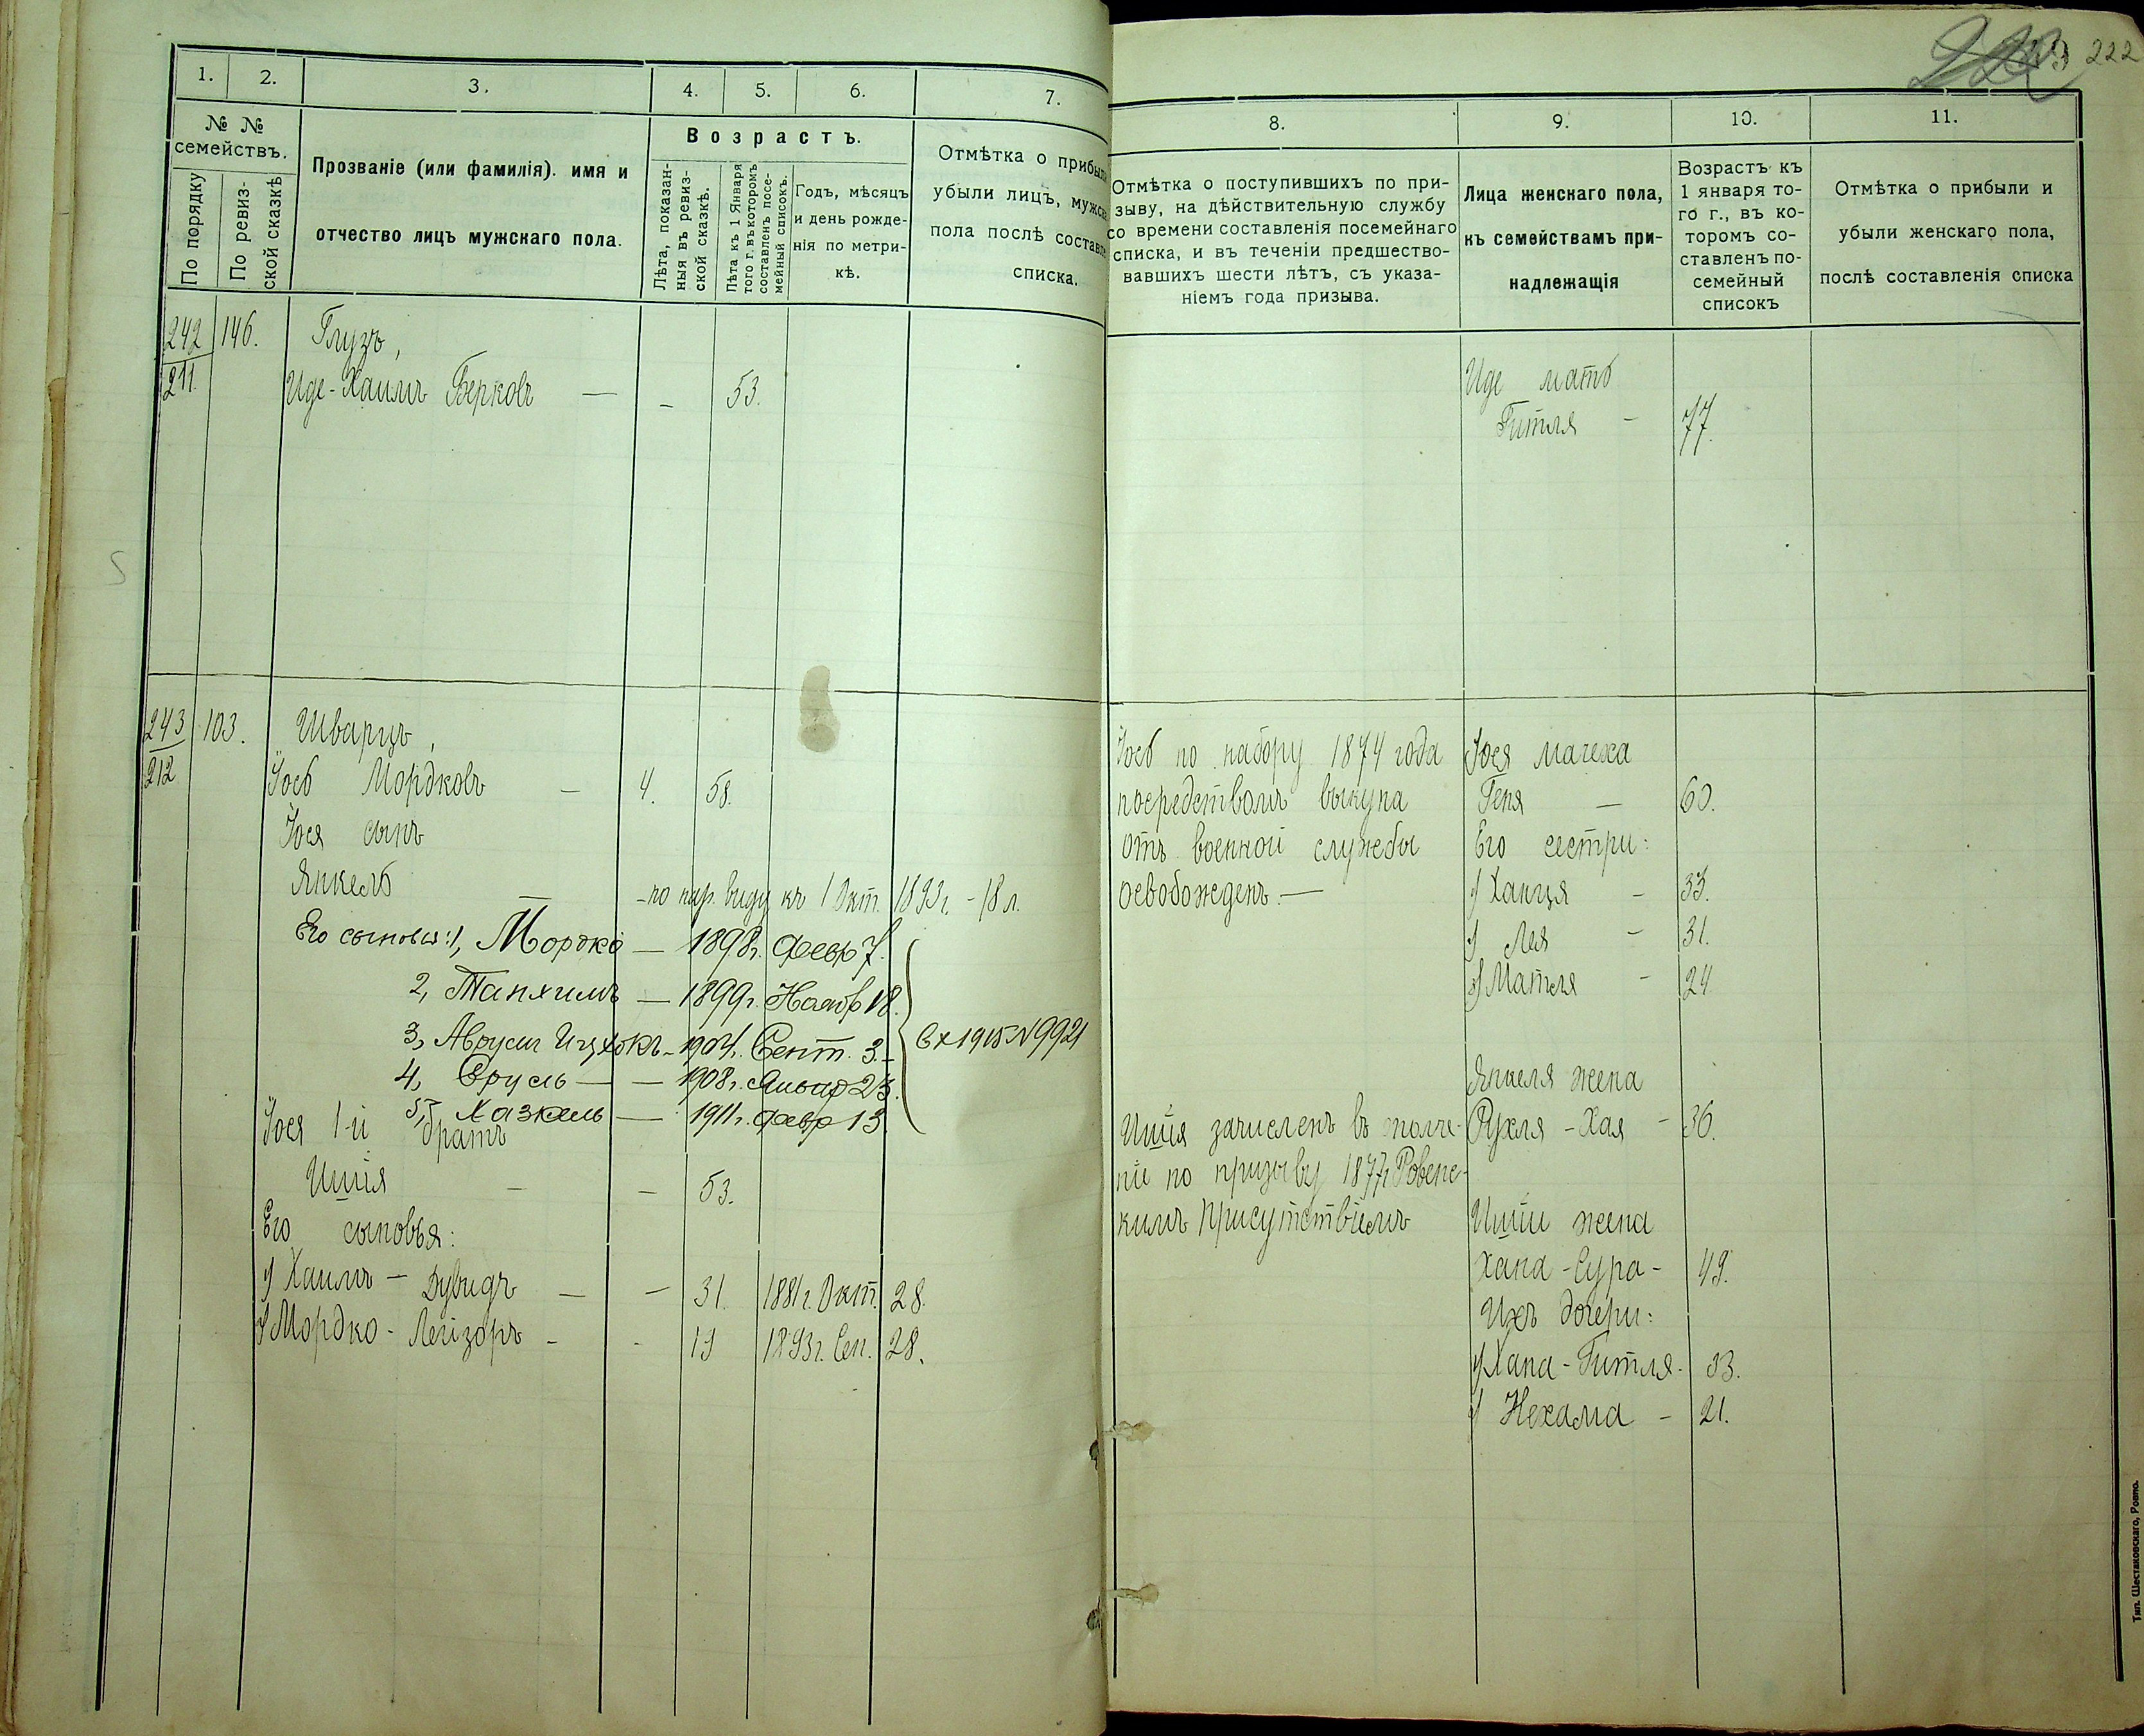 222
1. 2. 3. 4. 5. 6. 7.
№ № семействъ.
По порядку
По ревизской сказкѣ
Прозваніе (или фамилія). имя и
отчество лицъ мужскаго пола.
Возрастъ.
Лѣта, показан-
ныя въ ревиз-
ской сказкѣ.
Лѣта къ 1 Января
того г. въ которомъ
составленъ посе-
мейный списокъ.
Годъ, мѣсяцъ
и день рожде-
нія по метри-
кѣ.
Отмѣтка о прибыли
убыли лицъ, мужск
пола послѣ составле
списка.
242 146. Глузъ,
211. Иде-Хаимъ Берковъ — - 53.
243 103. Шварцъ,
212 Іось Мордковъ - 4. 58.
Іося сынъ
Янкель — - по нар. виду къ 1 Окт. 1893 г. - 18 л.
Его сыновья: 1, Мордко — 1898 г. Февр 7.
2, Танхимъ — 1899 г. Ноябр 18.
3, Аврумъ Ицхокъ - 1904 г. Сент. 3.
4, Сруль — — 1908 г. Январ 23.
5, Хазкель — 1911 г. Февр 13.
Вх 1915 N 9921
Іося 1-й братъ
Ишія - - 53.
Его сыновья:
1) Хаимъ - Дувидъ — - 31. 1881 г. Окт. 28.
2) Мордко - Лейзоръ - - 19 1893 г. Сен. 28.
8. 9. 10. 11.
Отмѣтка о поступившихъ по при-
зыву, на дѣйствительную службу
со времени составленія посемейнаго
списка, и въ теченіи предшество-
вавшихъ шести лѣтъ, съ указа-
ніемъ года призыва.
Лица женскаго пола,
къ семействамъ при-
надлежащія
Возрастъ къ
1 января то-
го г., въ ко-
торомъ со-
ставленъ по-
семейный
списокъ
Отмѣтка о прибыли и
убыли женскаго пола,
послѣ составленія списка
Иде мать
Гитля - 77.
Іось по набору 1874 года
посредствомъ выкупа
отъ военной службы
освобожденъ. —
Іося мачеха
Геня — 60.
Его сестри:
1) Ханця - 33.
2) Лея - 31.
3) Матля - 24
Янкеля жена
Рухля - Хая - 36.
Ишія зачисленъ въ ополче-
ніе по призыву 1877 г. Ровенс-
кимъ Присутствіемъ
Ишіи жена
Хана - Сура - 49.
Ихъ дочери:
1) Хана - Гитля - 33.
2) Нехама - 21.
Тип. Шестаковскаго, Ровно.